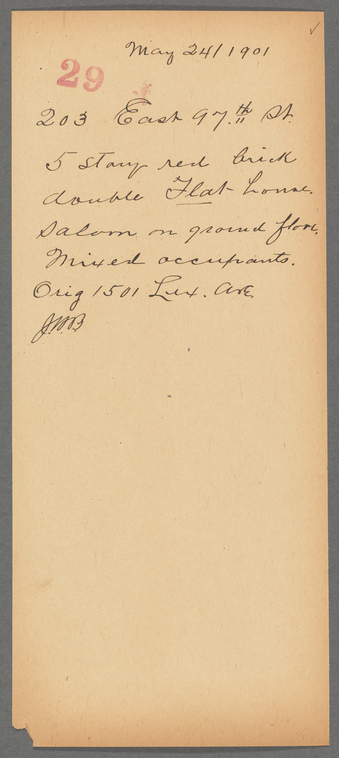 May 24/1901
29
203 East 97th St.
5 story red brick
double Flat house.
Saloon on ground floor.
Mixed occupants.
Orig 1501 Lex. Ave.